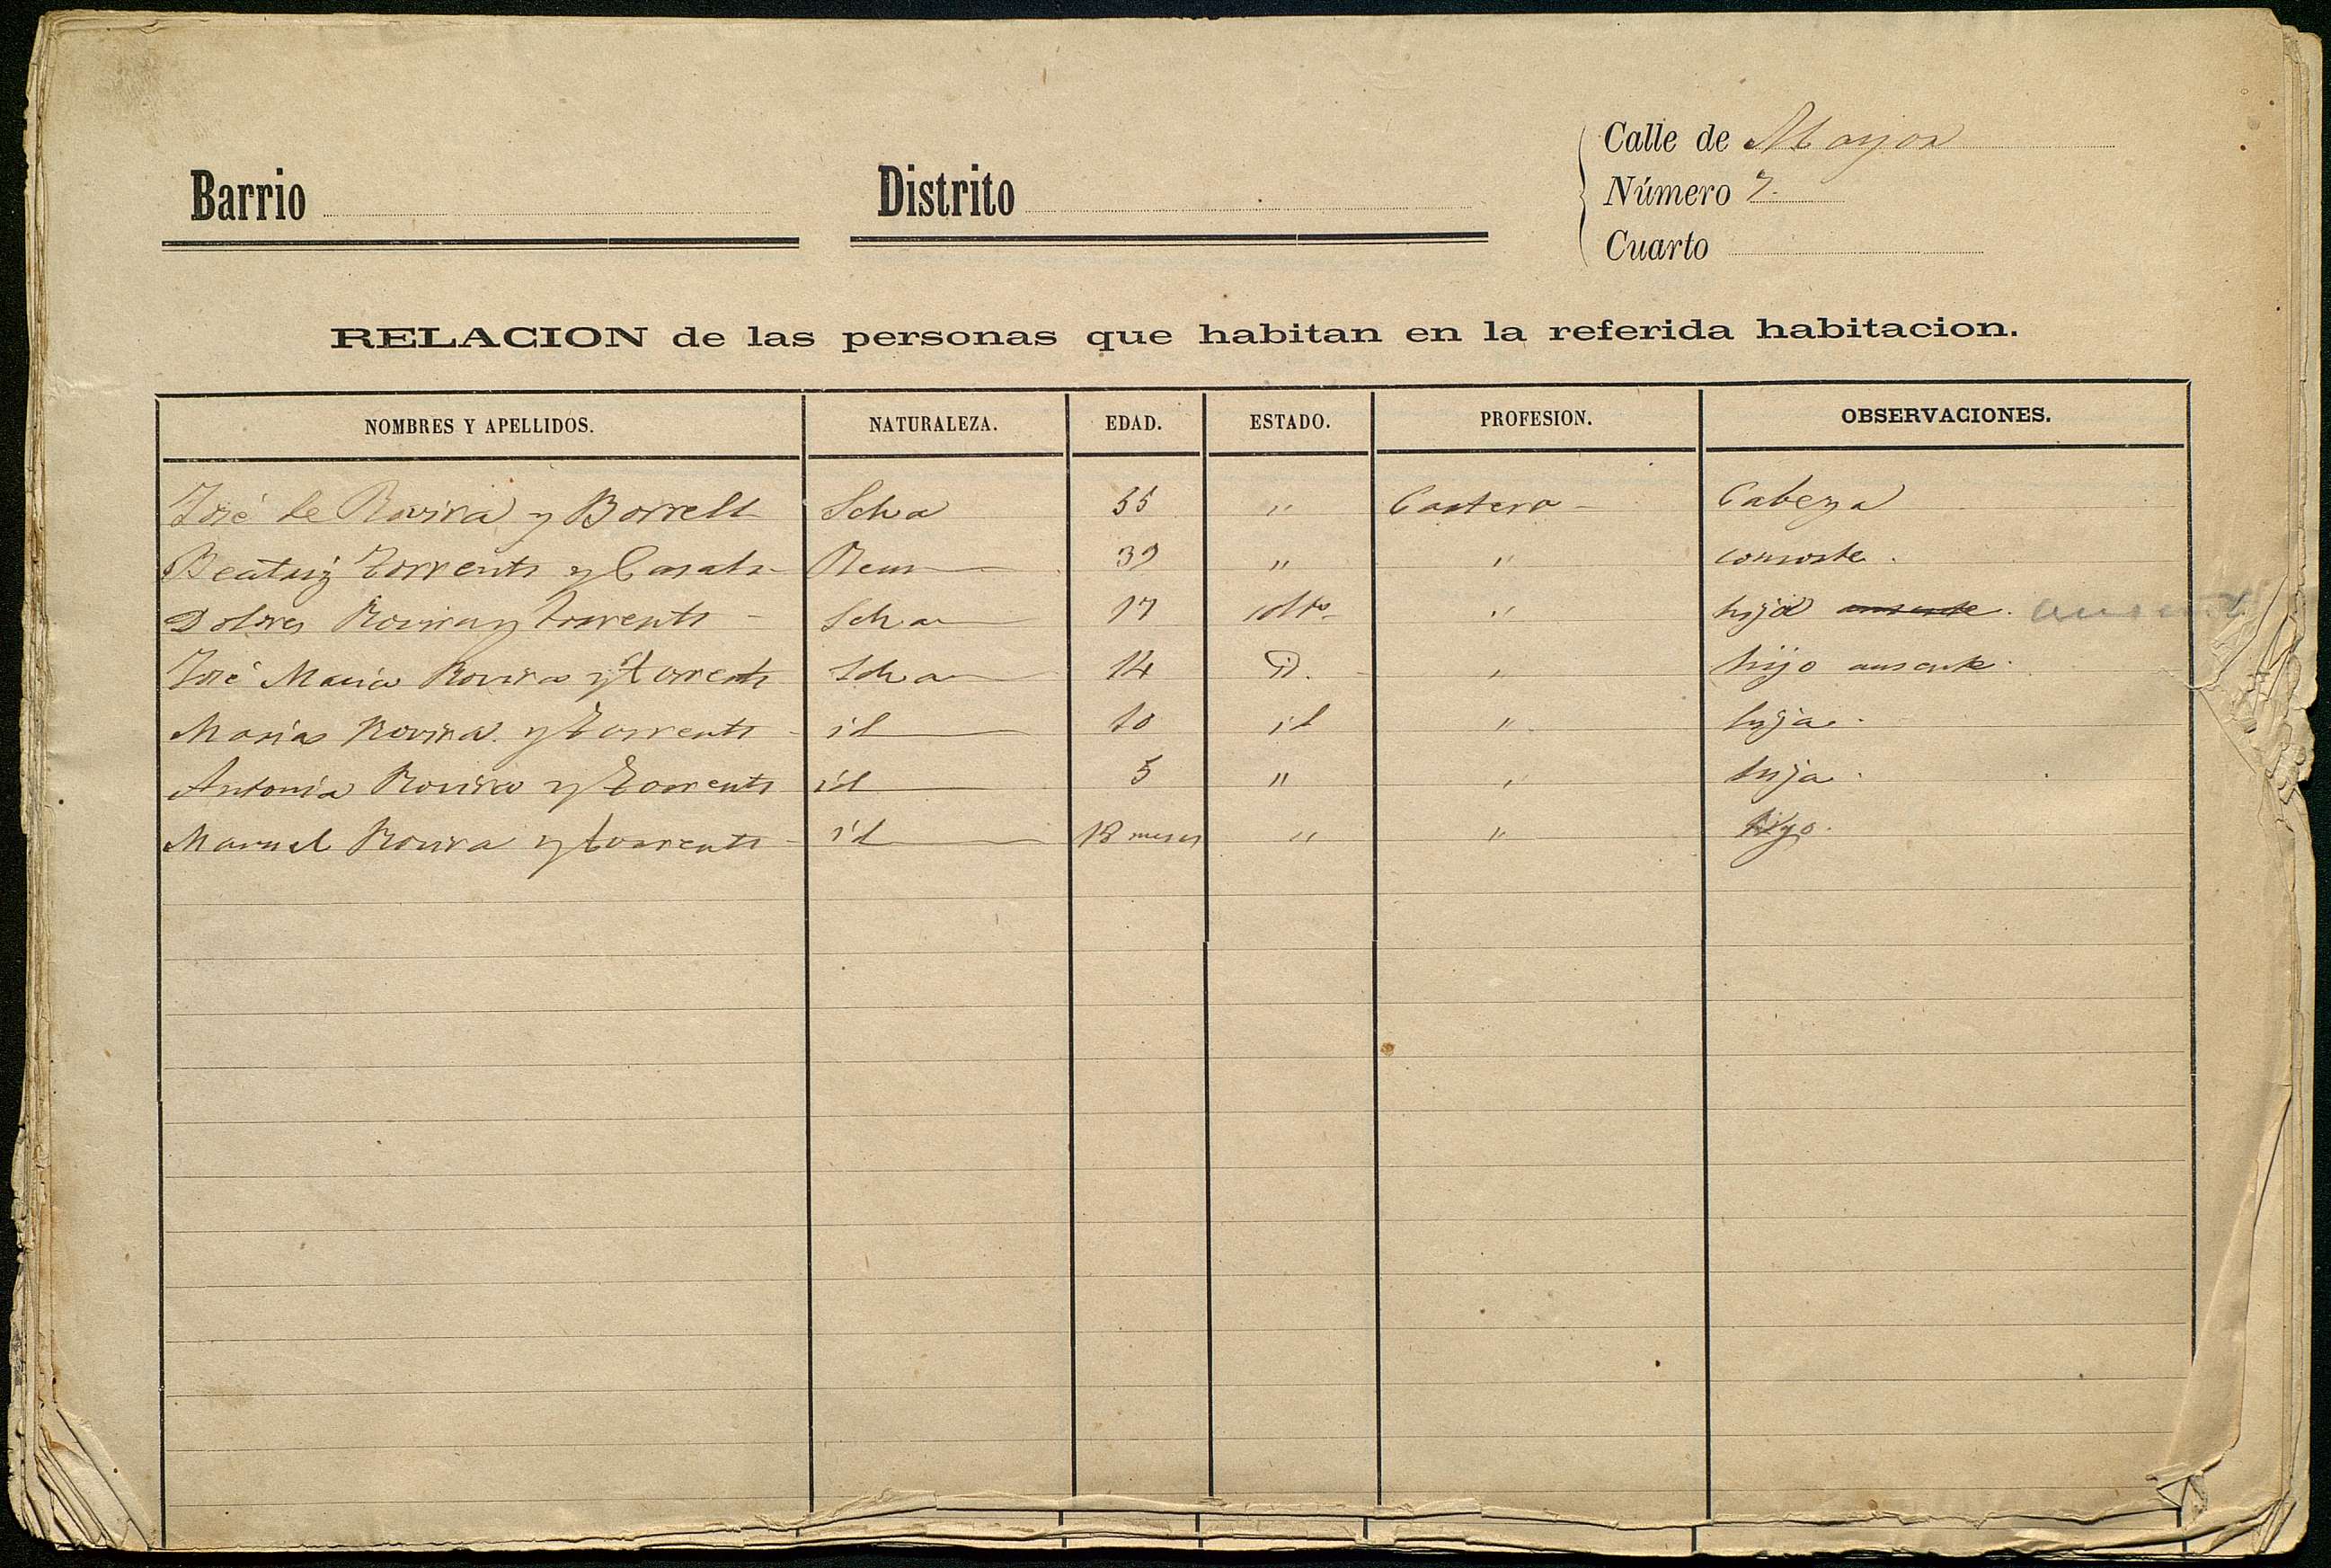 Barrio
Distrito
Calle de Mayor
Número 7.
Cuarto
RELACION de las personas que habitan en la referida habitacion.
NOMBRES Y APELLIDOS. NATURALEZA. EDAD. ESTADO. PROFESION. OBSERVACIONES.
José de Rovira y Borrell 55 " Cabeza
Beatriz Torrents y Casals Reus 39 " " consorte.
Dolores Rovira y Torrents 17 " hija ausente. ausente
José Maria Rovira y Torrents 14 id. " hijo ausente.
Maria Rovira y Torrents id 10 id " hija.
Antonia Rovira y Torrents id 5 " " hija.
Manuel Rovira y Torrents id 18 meses " " hijo.